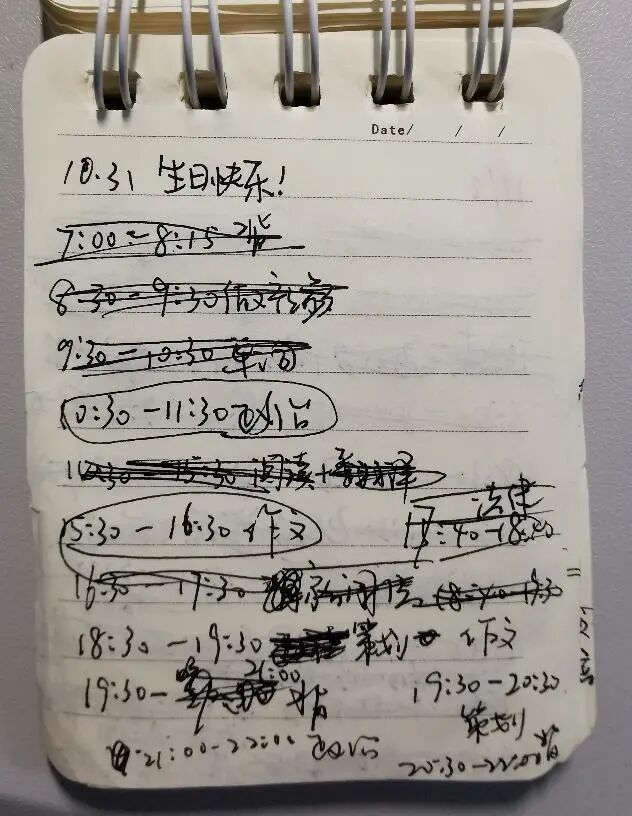 Date/ / /
10.31 生日快乐!
7:00-8:15 背
8:30-9:30
9:30-10:30 单词
10:30-11:30 政治
阅读+翻译
15:30-16:30 作文
法律
17:40-18:40
16:30-17:30
18:30-19:30 策划 作文
21:00
19:30- 背
19:30-20:30
策划
21:00-22:00 政治
20:30-22:00 背